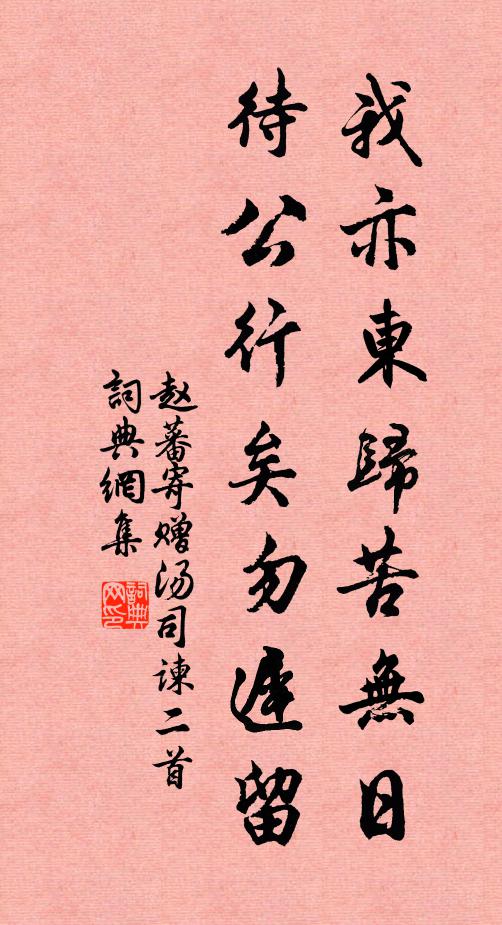 我亦東歸苦無日
待公行矣勿遲留
赵蕃寄贈汤司諫二首
詞典網集
詞典网印